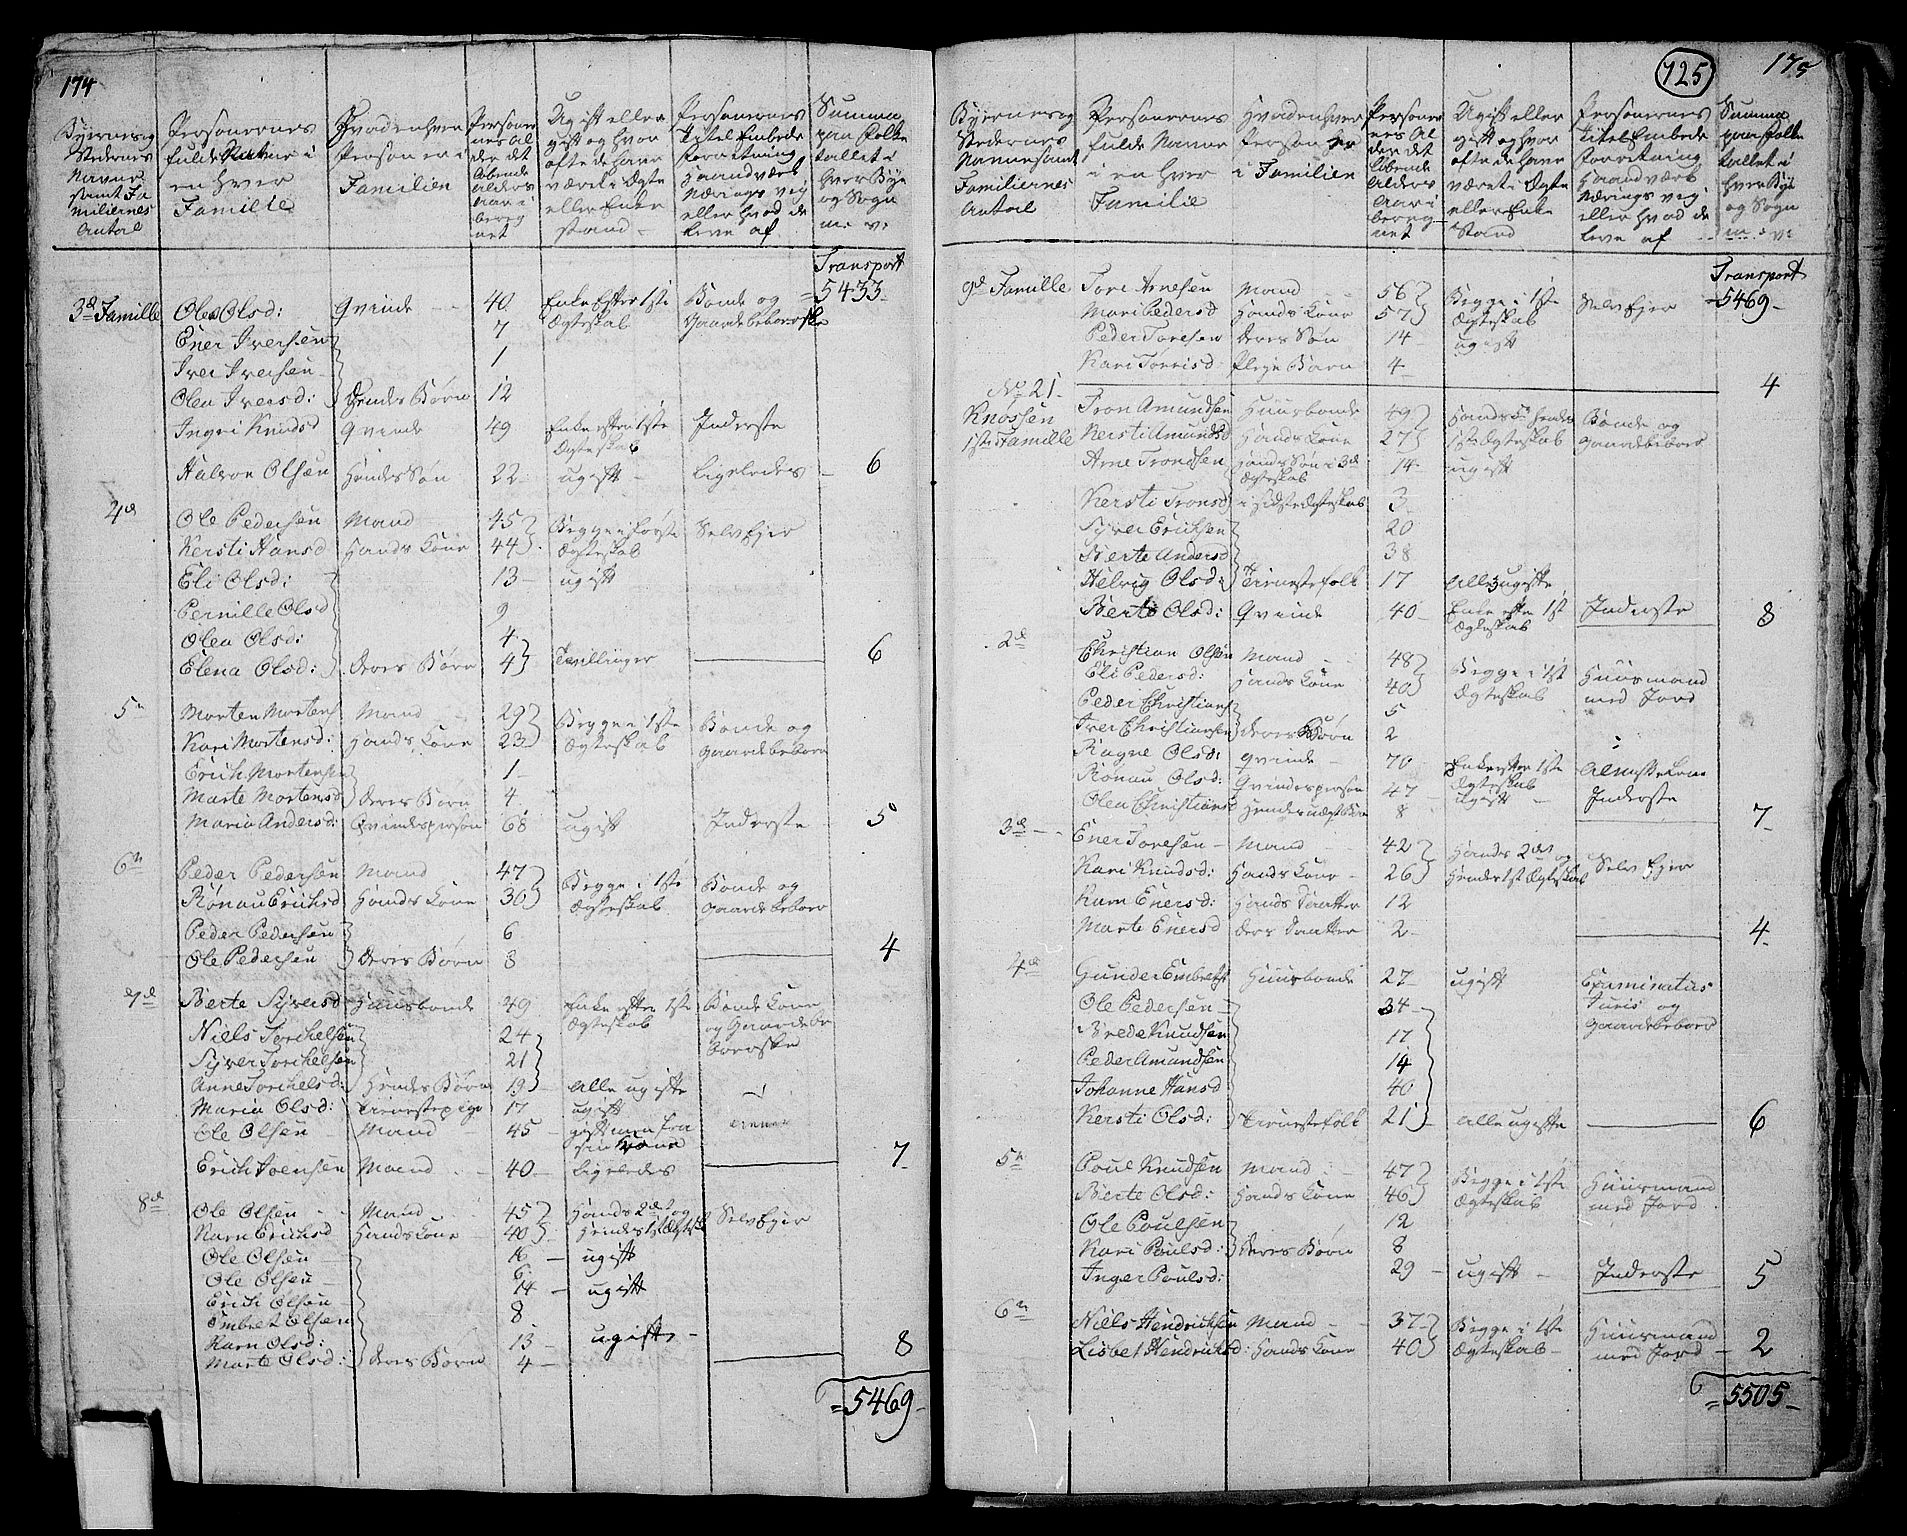 174
Byernes og Stedernes Navne samt Familiernes Antal
Personernes fulde Navne i en hver Familie
Hvad en hver Person er i Familien
Personernes Alder det løbende Alders Aar iberegnet
Ugift eller gift og hvor ofte de have været i Ægte eller Enke stand
Personernes Titel Embede Forretning Haandværk Nærings vej eller hvad de leve af
Summa paa Folke tallet i hver Bye og Sogn m: v:
Transport
3d Familie Olea Olsd: Qvinde 40 Enke efter 1ste Ægteskab Bonde og Gaardebeboerske =5433-
Ener Iversen 7
Iver Iversen 1
Olea Iversd: Hendes Børn 12
Ingri Knudsd Qvinde 49 Enke efter 1ste Ægteskab Inderste
Halvor Olsen Hendes Søn 22 ugift ligeledes 6
4de Ole Pedersen Mand 45 Begge i første Ægteskab Selv Ejer
Kersti Hansd Hands Kone 44
Eli Olsd: 13 ugift
Pernille Olsd 9
Olea Olsd: 4
Elena Olsd: deres Børn 4 Tvillinger 6
5te Morten Mortens Mand 29 Begge i 1ste Ægteskab Bonde og Gaardebeboer
Kari Mortensd: Hands Kone 23
Erich Mortensen 1
Marte Mortensd deres Børn 4
Maria Andersd: Qvindesperson 68 ugift Inderste 5
6te Peder Pedersen Mand 47 Begge i 1ste Ægteskab Bonde og Gaardebeboer
Rønau Erichsd Hands Kone 36
Peder Pedersen 6
Ole Pedersen Deres Børn 3 4
7de Berte Syversd Huusbonde 49 Enke efter 1ste Ægteskab Bonde Kone og Gaardebeboerske
Niels Torchelsen 24
Syver Torchelsen 21
Anne Torchelsd: Hendes Børn 19 alle ugifte
Maria Olsd: Tienestepige 17 ugift
Ole Olsen Mand 45 gift men fra sin Kone
Erich Joensen Mand 40 ligeledes 7
8de Ole Olsen Mand 45 Hands 2det og Hendes 1st Ægtesk Selv Ejer
Karn Erichsd Hands Kone 40
Ole Olsen 16 ugift
Ole Olsen 6
Erich Olsen 14 ugift
Embret Olsen 8
Karn Olsd: 13 ugift
Marte Olsd: deres Børn 4 8
=5469-
725
175
Byernes og Stedernes Navne samt Familiernes Antal
Personernes fulde Navne i en hver Familie
Hvad en hver Person er i Familien
Personernes Alder det løbende Alders Aar iberegnet
Ugift eller gift og hvor ofte de have været i Ægte eller Enke Stand
Personernes Titel Embede Forretning Haandværk Nærings vej eller hvad de leve af
Summa paa Folke tallet i hver Bye og Sogn m: v:
Transport
9de Familie Tore Arnesen Mand 56 Begge i 1ste Ægteskab Selv Ejer =5469-
Mari Pedersd Hands Kone 57
Peder Toresen deres Søn 14 ugift
Kari Torrisd Pleje Barn 4 4
No 21.
Knossen
1ste Familie Tron Amundsen Huusbonde 49 Hands 3die Hendes 1ste Ægteskab Bonde og Gaardebeboer
Kersti Amundsd Hands Kone 27
Arne Trondsen Hands Søn i 3de Ægteskab 14 ugift
Kersti Tronsd i sidste Ægteskab 3
Syver Erichsen 20
Berte Andersd 38
Helvig Olsd: Tienestefolk 17 alle 3 ugifte
Berte Olsd: Qvinde 40 Enke efter 1st Ægteskab Inderste 8
2de Christian Olsen Mand 48 Begge i 1st Ægteskab Huusmand med Jord
Eli Pedersd: Hands Kone 40
Peder Christians 5
Iver Christiansen deres Børn 2
Ragne Olsd: Qvinde 70 Enke efter 1ste Ægteskab Almisselem
Rønau Olsd: Qvindesperson 47 ugift Inderste
Olea Christiansd Hendes uægte Barn 8 7
3de Ener Toresen Mand 42 Hands 2det og Hendes 1st Ægteskab Selv Ejer
Kari Knudsd: Hands Kone 26
Karn Enersd: Hands Daatter 12
Marte Enersd deres Daatter 2 4
4de Gunder Embretsen Huusbonde 27 ugift Examinatus Juris og Gaardebeboer
Ole Pedersen 34
Brede Knudsen 17
Peder Amundsen 14
Johanne Hansd 40
Kersti Olsd: Tienestefolk 21 alle ugifte 6
5te Poul Knudsen Mand 47 Begge i 1ste Ægteskab Huusmand med Jord
Berte Olsd: Hands Kone 46
Ole Poulsen 12
Kari Poulsd: deres Børn 8
Inger Poulsd: 29 ugift Inderste 5
6te Niels Hendrichsen Mand 37 Begge i 1ste Ægteskab Huusmand med Jord
Lisbet Hendrichsd: Hands Kone 40 2
=5505-